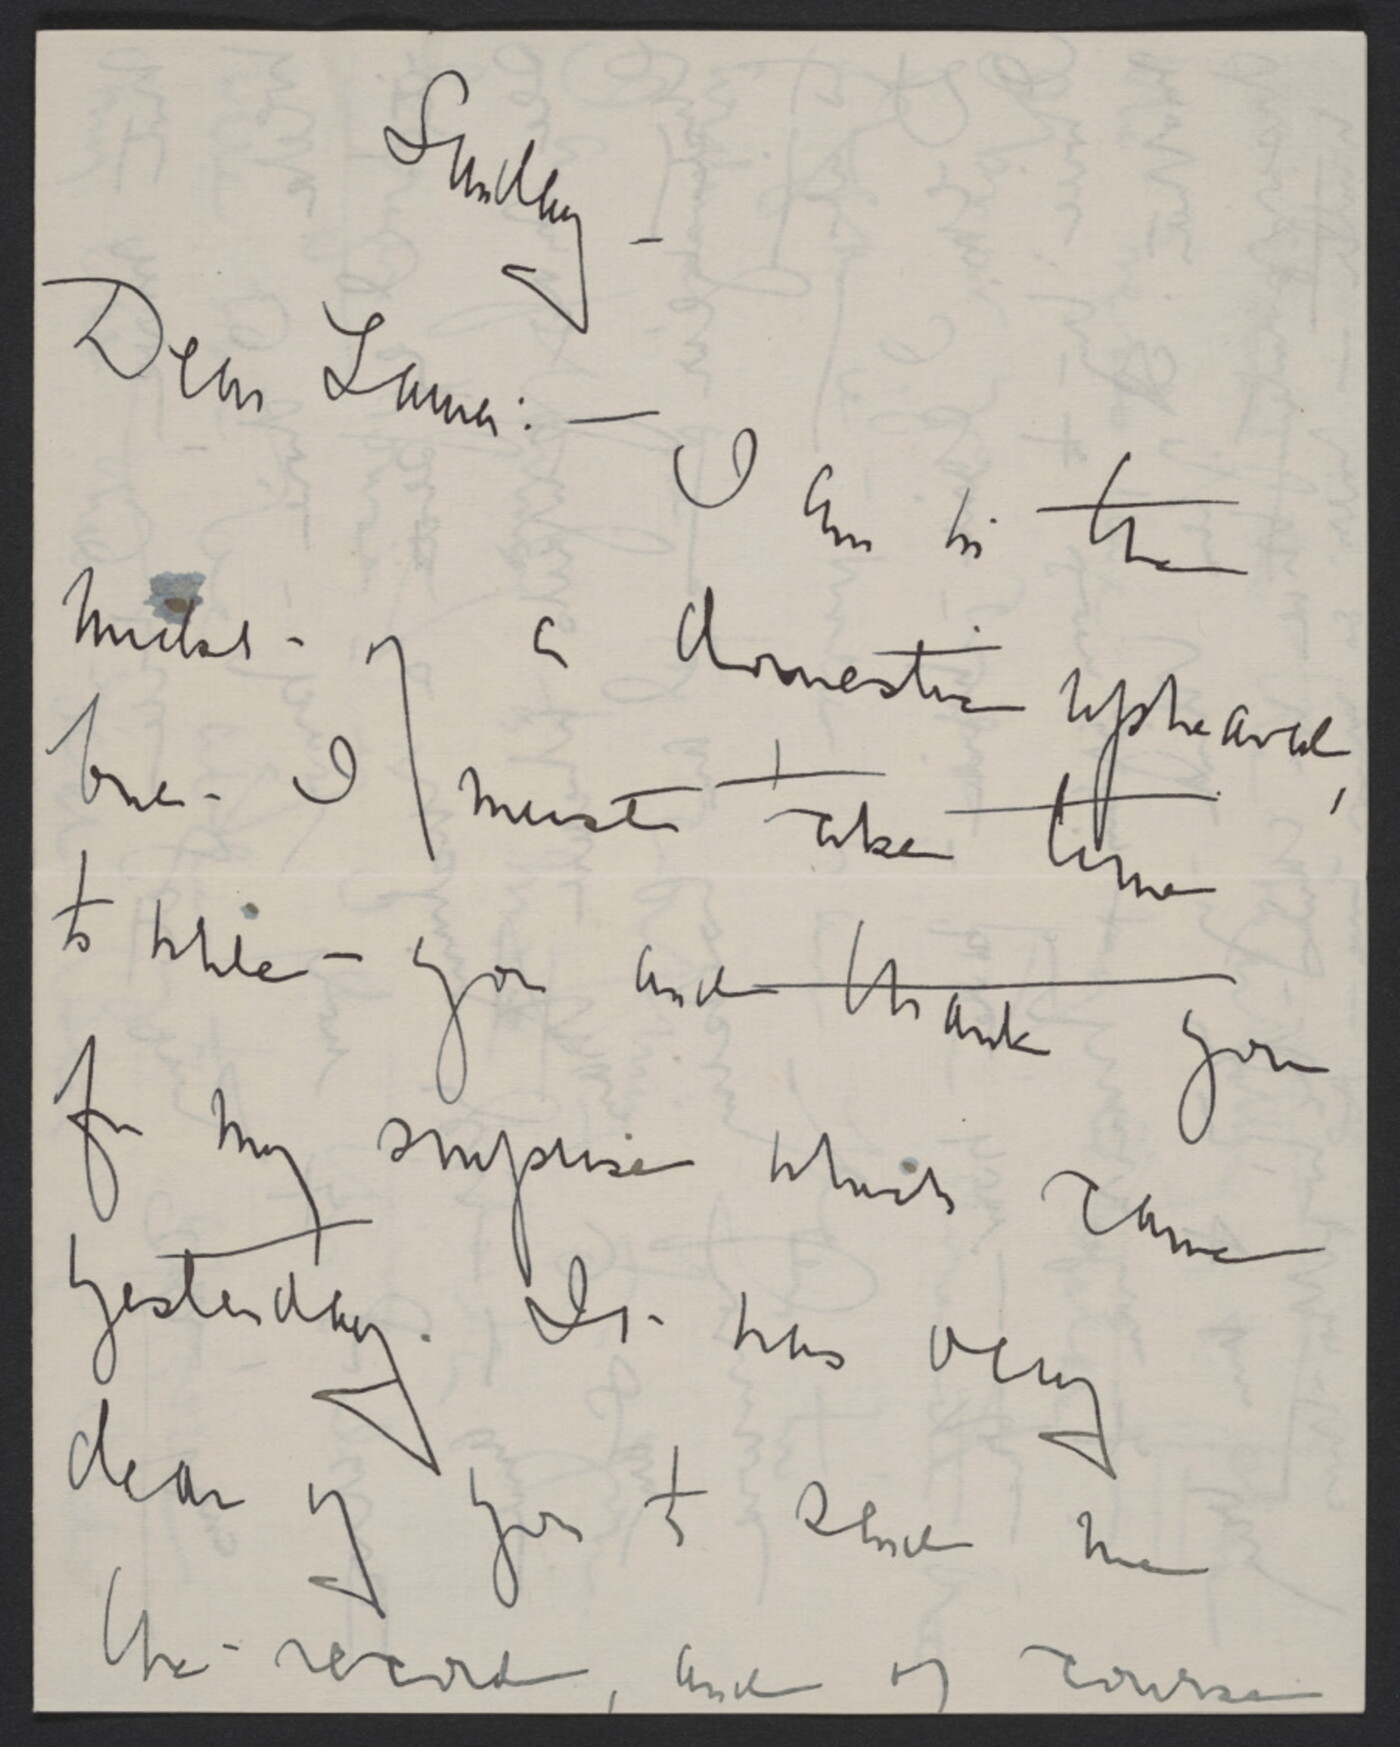 Sunday -
Dear Laura: -
I am in the
midst of a domestic upheaval,
but I must take time
to write you and thank you
for my surprise which came
yesterday. It was very
dear of you to send me
the record, and of course